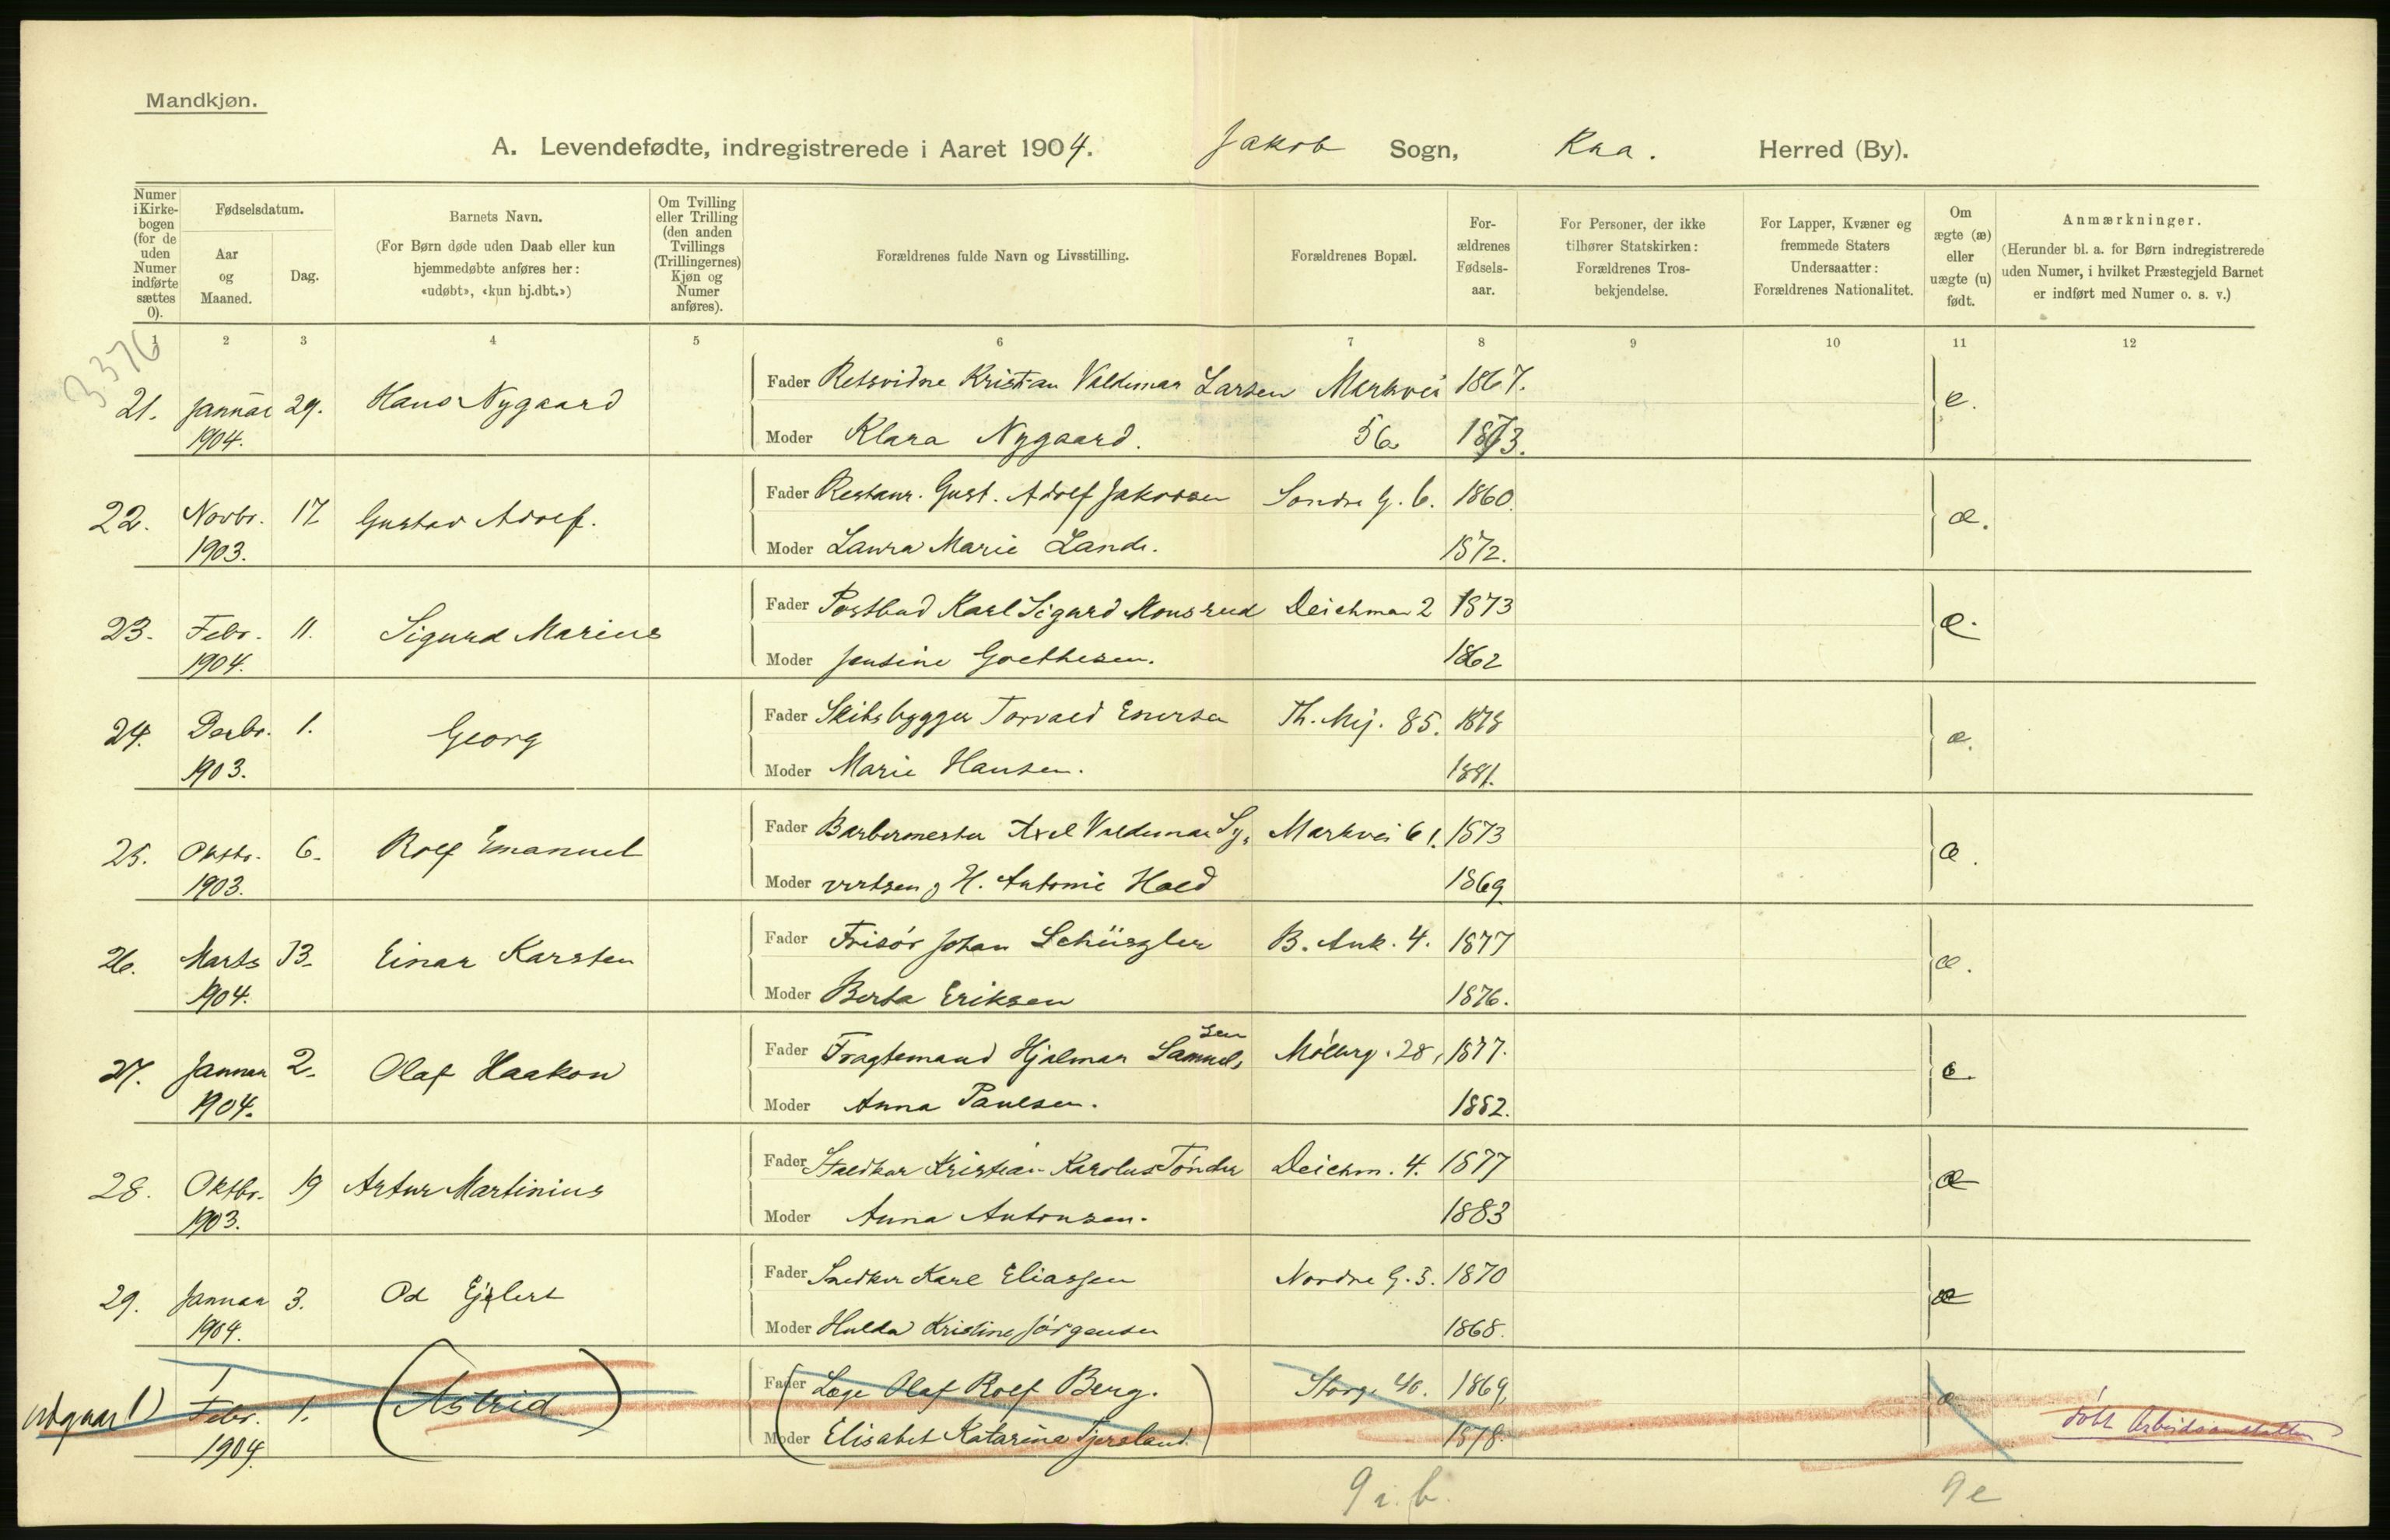 Mandkjøn.
A. Levendefødte, indregistrerede i Aaret 1904. Jakob Sogn, Kra. Herred (By).
Numer i Kirke-bogen (for de uden Numer indførte sættes 0).
Fødselsdatum.
Aar og Maaned.
Dag.
Barnets Navn.
(For Børn døde uden Daab eller kun hjemmedøbte anføres her: «udøbt», «kun hj.dbt.»)
Om Tvilling eller Trilling (den anden Tvillings (Trillingernes) Kjøn og Numer anføres).
Forældrenes fulde Navn og Livsstilling.
Forældrenes Bopæl.
For-ældrenes Fødsels-aar.
For Personer, der ikke tilhører Statskirken: Forældrenes Tros-bekjendelse.
For Lapper, Kvæner og fremmede Staters Undersaatter: Forældrenes Nationalitet.
Om ægte (æ) eller uægte (u) født.
Anmærkninger.
(Herunder bl. a. for Børn indregistrerede uden Numer, i hvilket Præstegjeld Barnet er indført med Numer o. s. v.)
1 2 3 4 5 6 7 8 9 10 11 12
3376
Fader Retsvidne Kristian Valdemar Larsen Markvei 1867.
21. Januar 29. Hans Nygaard æ.
1904. Moder Klara Nygaard. 56 1873.
Fader Restaur. Gust. Adolf Jakobsen Søndre G. 6. 1860.
22. Novbr. 17 Gustav Adolf. æ.
1903. Moder Laura Marie Lande. 1872.
Fader Postbud Karl Sigurd Monsrud Deichman 2 1873
23. Febr. 11. Sigurd Marius æ.
1904. Moder Jensine Goethesen. 1862
Fader Skibsbygger Torvald Enersen Th. Mej. 85. 1878
24. Decbr. 1. Georg æ.
1903. Moder Marie Hansen. 1881.
Fader Barbermester Axel Valdemar Sy- Markvei 61. 1873
25. Oktbr. 6. Rolf Emanuel æ.
1903. Moder vertsen, H. Antonie Hold 1869
Fader Frisör Johan Schüszler B. Ank. 4. 1877
26. Marts 13. Einar Karsten æ.
1904. Moder Berta Eriksen 1876.
Fader Fragtemand Hjalmar Samuelsen Möllerg. 28, 1877.
27. Januar 2. Olaf Haakon æ.
1904. Moder Anna Paulsen. 1882.
Fader Staldkar Kristian Karolus Tönder Deichm. 4. 1877
28. Oktbr. 19 Artur Martinius æ
1903. Moder Anna Antonsen. 1883
Fader Snedker Karl Eliassen Nordre G. 3. 1870
29. Januar 3. Od Ejlert æ
1904. Moder Hulda Kristine Jörgensen 1868.
Fader Læge Olaf Rolf Berg. Storg. 40. 1869.
udgaar 1) Febr. 1. (Astrid) æ döbt Arbeidsanstalten
1904. Moder Elisabet Katarina Tjersland. 1878.
9 i. b. 9 e